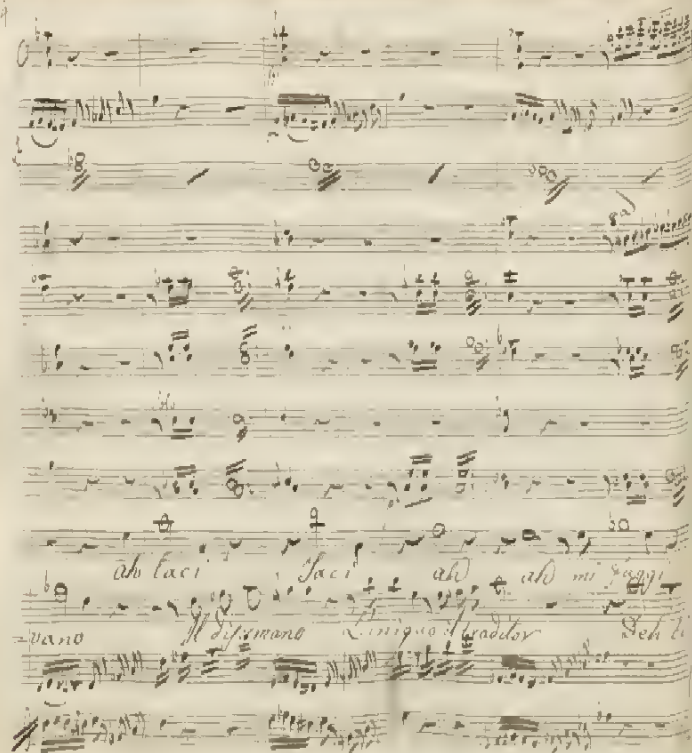 ah taci Taci ah ah mi fuggi
=vano Il disumano L'iniquo il traditor Deh ti